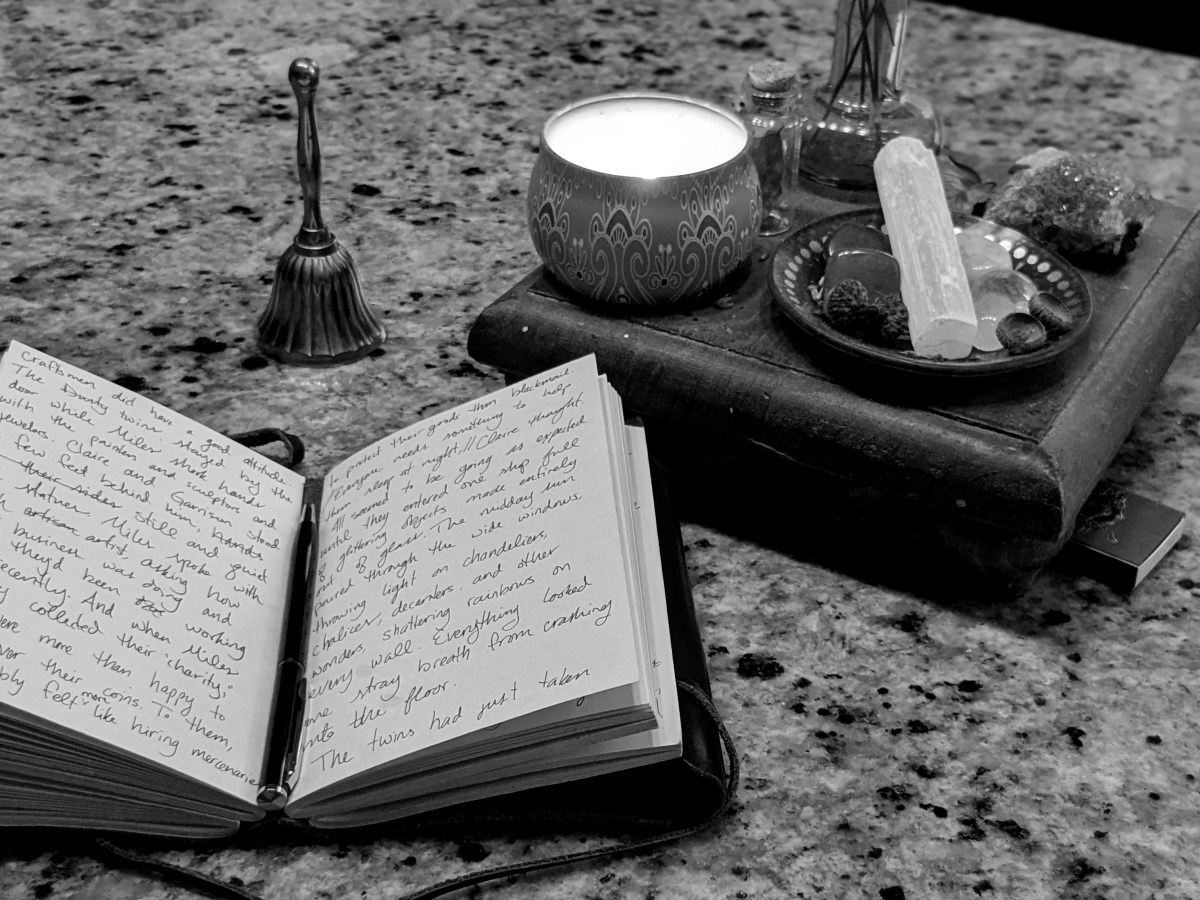 craftsmen did have a good attitude.
The Dunty twins stayed by the
door while Miles shook hands
with the painters and sculptors and
jewelers. Claire and Garrison stood
few feet behind him, hands
their sides still and quiet
Miles spoke
artisan artist, asking how
business was doing and
they'd been working
recently. And when Miles
collected their "charity,"
were more than happy to
over their coins. To them,
felt more like hiring mercenaries
to protect their goods than blackmail.
//Everyone needs something to help
them sleep at night,// Claire thought.
All seemed to be going as expected
until they entered one shop full
of glittering objects made entirely
out of glass. The midday sun
poured through the wide windows.
throwing light on chandeliers,
chalices, decanters, and other
wonders, shattering rainbows on
every wall. Everything looked
one stray breath from crashing
into the floor.
The twins had just taken